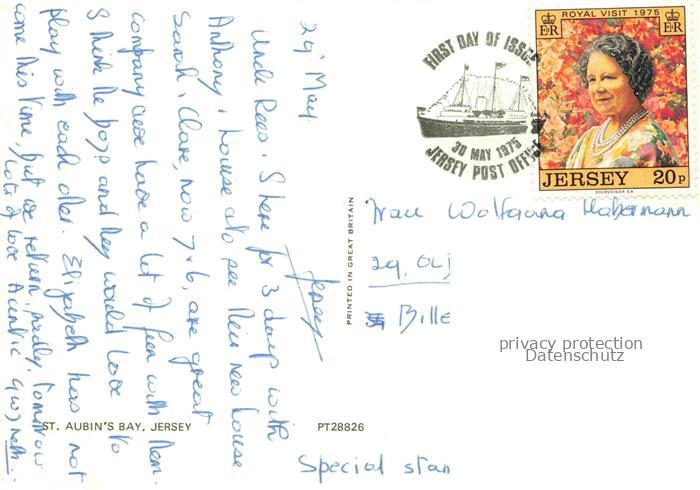 29' May
Uncle Rees & I here for 3 days with
Anthony & Louise also see their new house
Sarah & Clare, now 7 & 6, are great
company & we have a lot of fun with them.
I think the boys and they would love to
play with each other. Elizabeth has not
come this time, but we return, sadly, tomorrow
Lots of love Auntie Gwyneth.
Jersey
ST. AUBIN'S BAY, JERSEY
PT28826
PRINTED IN GREAT BRITAIN
FIRST DAY OF ISSUE
30 MAY 1975
JERSEY POST OFFICE
ROYAL VISIT 1975
E II R
E II R
JERSEY 20p
COURVOISIER S.A.
Frau Wolfgang Habermann
29,
Bille
privacy protection
Datenschutz
Special stam